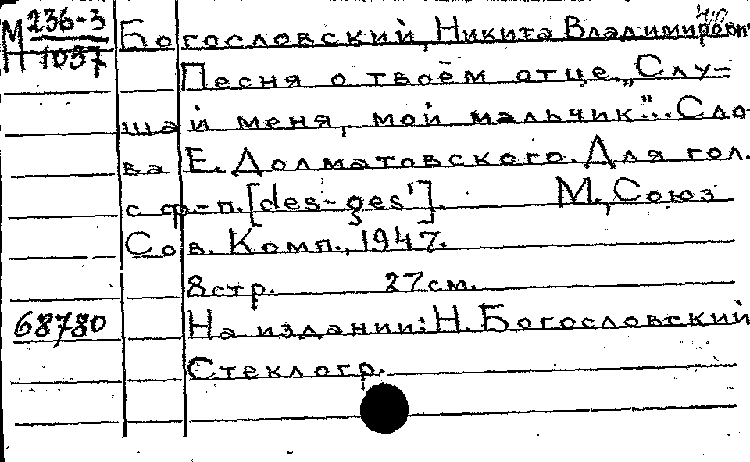 М 236-3 Богословский, Никита Владимирович
П 1057
Песня о твоём отце. „Слу-
шай меня, мой мальчик"... Сло-
ва Е. Долматовского. Для гол.
с ф.-п. [des-ges']. М., Союз
Сов. Комп., 1947.
8 стр. 27 см.
68780 На издании: Н. Богословский
Стеклогр.